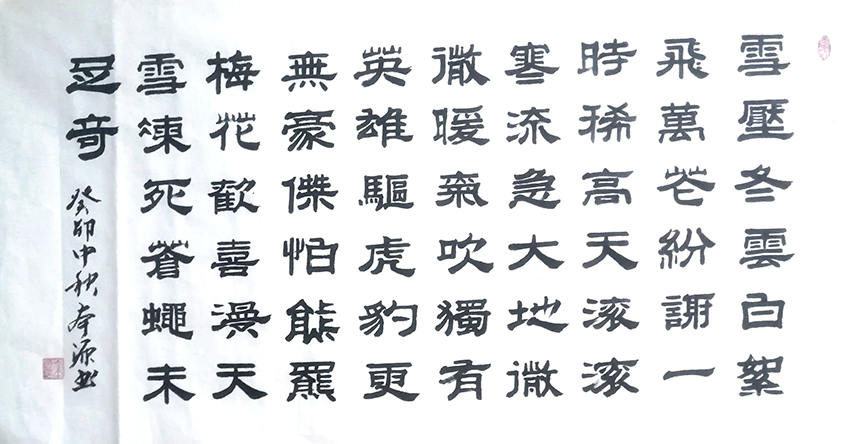 雪壓冬雲白絮
飛萬花紛謝一
時稀高天滾滾
寒流急大地微
微暖氣吹獨有
英雄驅虎豹更
無豪傑怕熊羆
梅花歡喜漫天
雪凍死蒼蠅未
足奇
癸卯中秋本源书